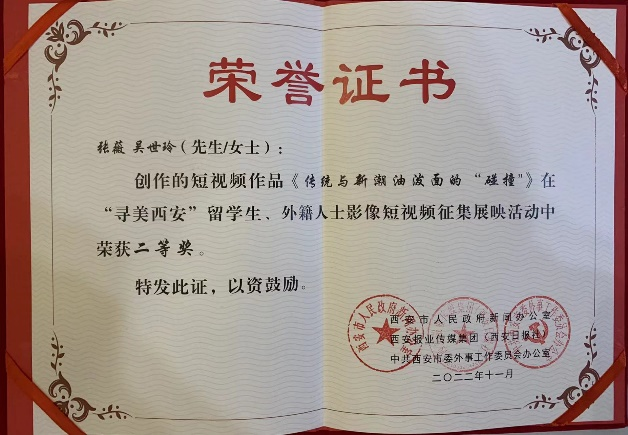 荣誉证书
张薇 吴世玲（先生/女士）：
创作的短视频作品《传统与新潮油泼面的“碰撞”》在
“寻美西安”留学生、外籍人士影像短视频征集展映活动中
荣获二等奖。
特发此证，以资鼓励。
西安市人民政府新闻办公室
西安报业传媒集团（西安日报社）
中共西安市委外事工作委员会办公室
二〇二二年十一月